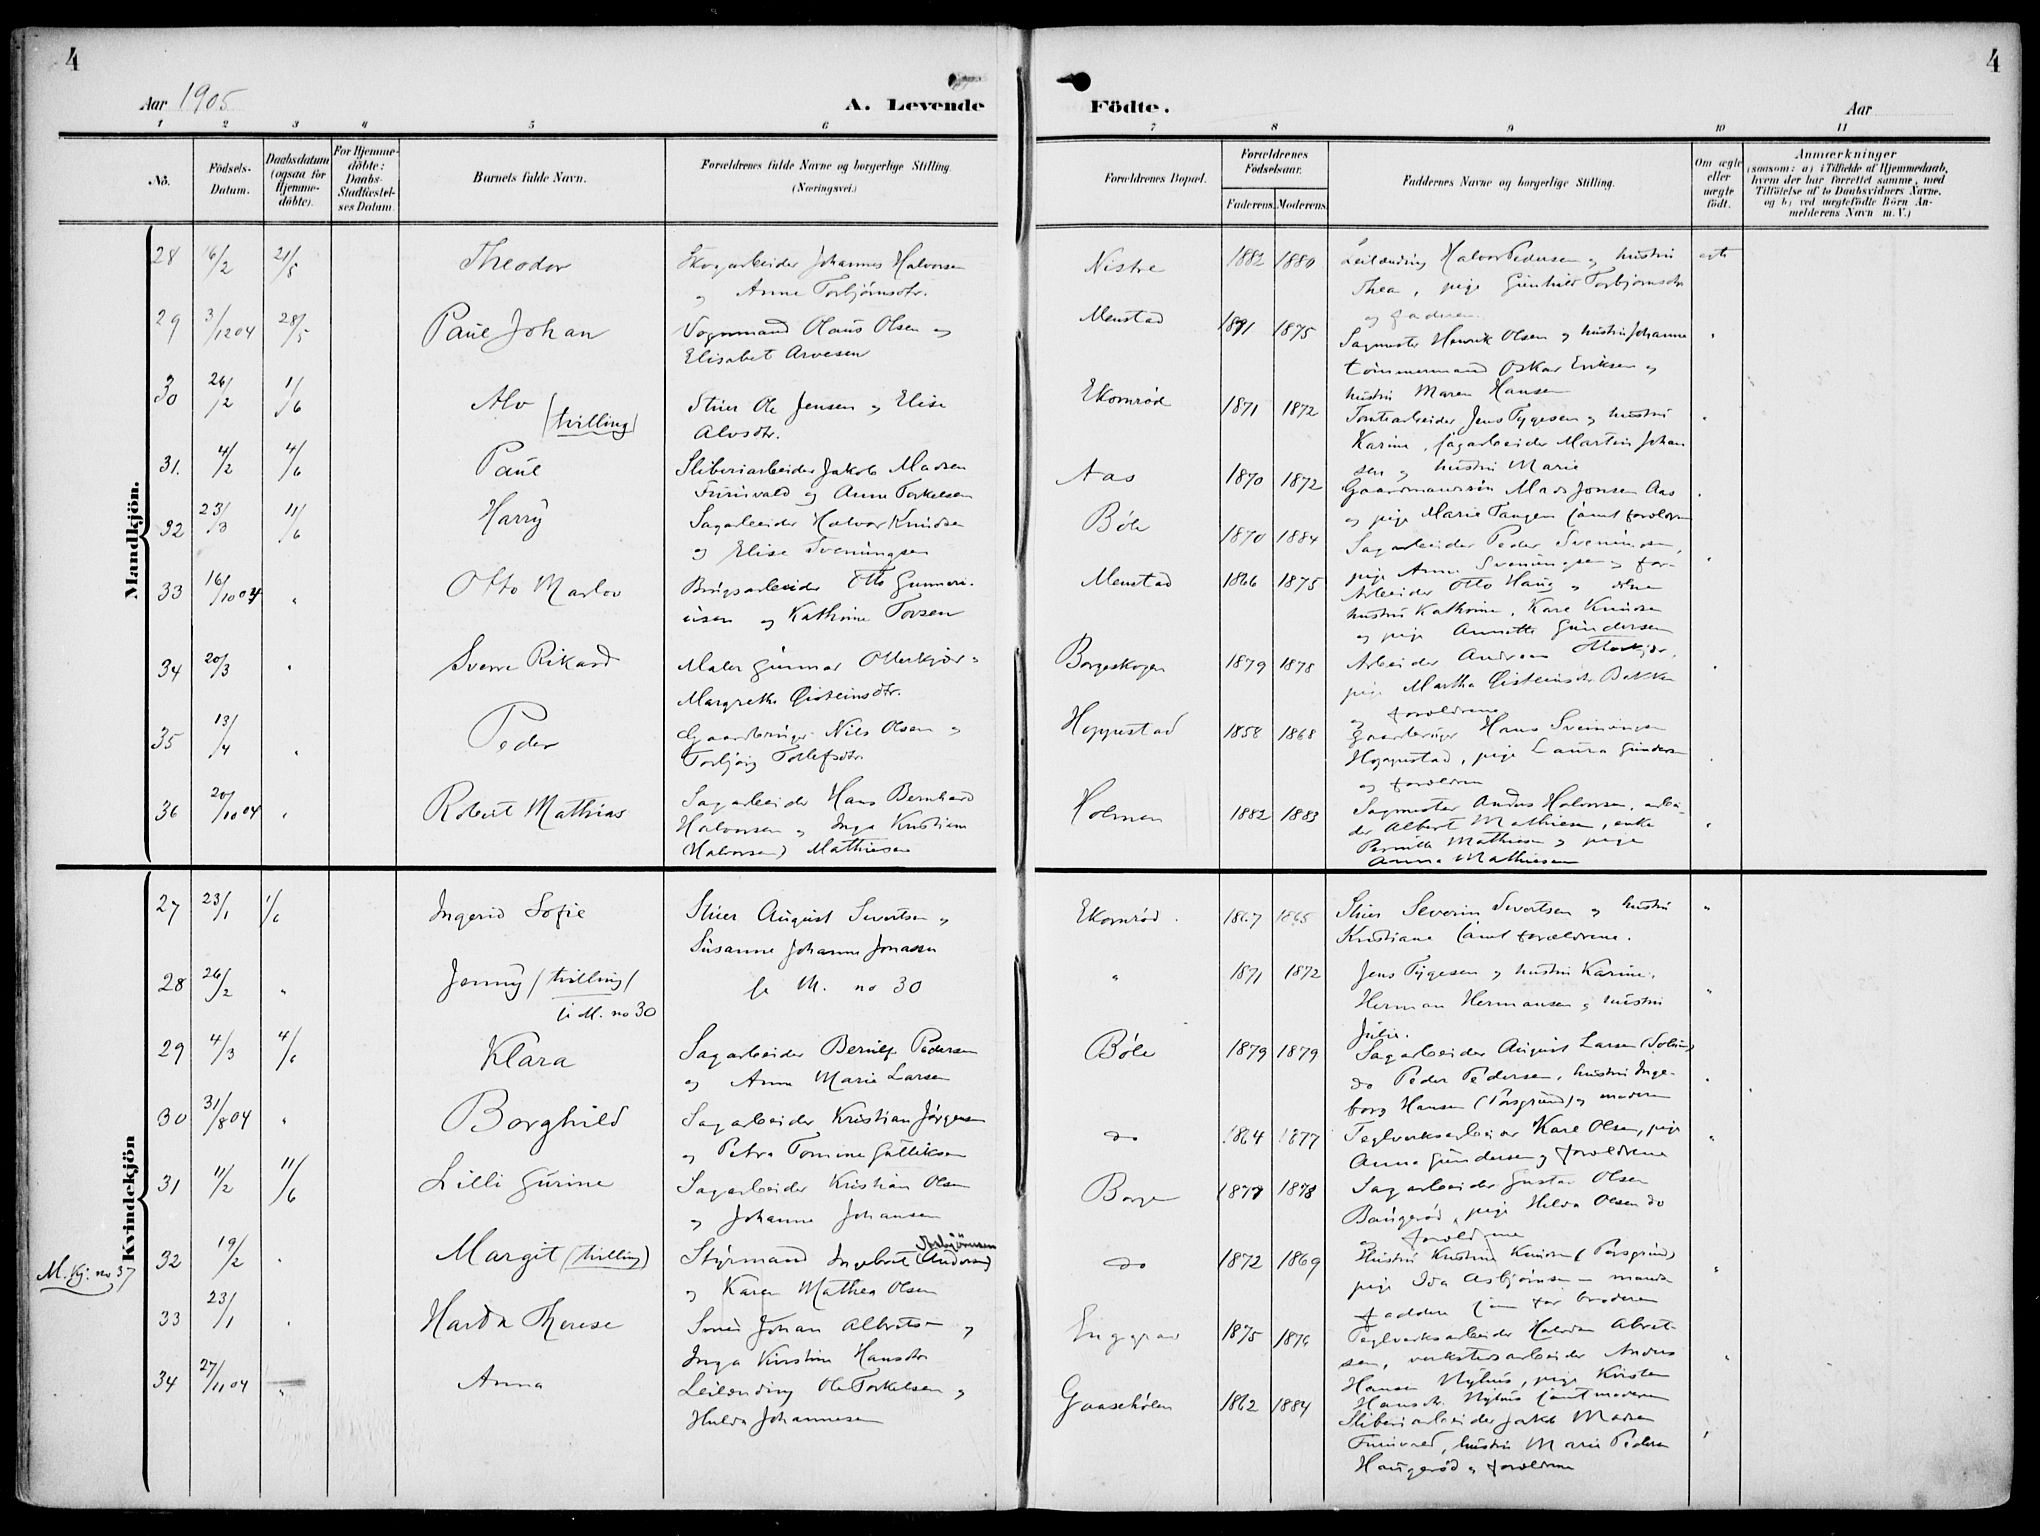 4
4
Aar 1905
A. Levende
Födte.
Aar
1 2 3 4 5 6 7 8 9 10 11
Nö.
Födsels-Datum.
Daabsdatum (ogsaa for Hjemme-döbte).
For Hjemme-döbte: Daabs-Stadfæstel-ses Datum.
Barnets fulde Navn.
Forældrenes fulde Navne og borgerlige Stilling. (Næringsvei.)
Forældrenes Bopæl.
Forældrenes Födselsaar.
Faderens. Moderens.
Faddernes Navne og borgerlige Stilling.
Om ægte eller uægte födt.
Anmærkninger
(saasom: a) i Tilfælde af Hjemmedaab, hvem der har forrettet samme, med Tilföielse af to Daabsvidners Navne, og b) ved uægtefödte Börn An-melderens Navn m. V.)
Mandkjön.
28 16/2 21/5 Theodor Skogarbeider Johannes Halvorsen
og Anne Torbjørnsdtr.
Nistre 1882 1880 Leilænding Halvor Pedersen og hustru
Thea, pige Gunhild Torbjørnsdtr
og faderen.
ægte
29 3/12 04 28/5 Paul Johan Vognmand Olaus Olsen og
Elisabet Arvesen
Menstad 1875 Sagmester Henrik Olsen og hustru Johanne
tømmermand Oskar Eriksen og
hustru Maren Hansen
30 26/2 1/6 Alv (tvilling) Stuer Ole Jensen og Elise
Alvsdtr.
Ekornrød 1871 1872 Jens Tygesen og hustru
Karine, sagarbeider Martin Johan
sen og hustru Marie
31. 4/2 4/6 Paul Sliberiarbeider Jakob Madsen
Furuvald og Anne Torkelsen
Aas 1870 1872 Gaardmandssøn Mads Jonsen Aas
og pige Marie Tangen samt forældrene
32 23/3 11/6 Harry Sagarbeider Halvor Knudsen
og Elise Sveningsen
Böle 1870 1884 Sagarbeider Peder Sveningsen,
pige Anne Sveningsen og for-
33 16/10 04 " Otto Marlov Brugsarbeider Otto Gunneri-
usen og Kathrine Torsen
Menstad 1866 1875 Arbeider Otto Haug og
hustru Kathrine, Kare Knudsen
og pige Annette Gundersen
34 20/3 " Sverre Rikard Maler Gunnar Otterkjær "
Margrethe Øisteinsdtr.
Borgeskogen 1879 1878 Arbeider Andreas Otterkjær,
pige Martha Øisteinsdtr Bakka
og forældrene
35 13/4 " Peder Gaardbruger Nils Olsen og
Torbjørg Tollefsdtr.
Hoppestad 1858 1868 Gaardbruger Hans Sveinungsen
Hoppestad, pige Laura Gundersen
og forældrene
36 20/10 04 " Robert Mathias Sagarbeider Hans Bernhard
Halvorsen og Inga Kristiane
(Halvorsen) Mathiesen
Holmen 1882 1883 Sagmester Anders Halvorsen, arbei-
der Albert Mathiesen, enke
Pernille Mathiesen og pige
Anna Mathiesen
Kvindekjön
27 23/1 1/6 Ingerid Sofie Stuer August Sevortsen og
Susanne Johanne Jonassen
Ekornrød. 1867 1865 Stuer Severin Sevortsen og hustru
Kristiane samt forældrene.
28 26/2 " Jenny (tvilling)
se M. no 30
se M. no 30
" 1871 1872 Jens Tygesen og hustru Karine.
Herman Hermansen og hustru
Julie.
29 4/3 4/6 Klara Sagarbeider Bernlf Pedersen
og Anna Marie Larsen
Böle 1879 1879 Sagarbeider August Larsen (Solum)
do Peder Pedersen, hustru Inge-
borg Hansen (Porsgrund) og moderen
30 31/8 04 " Borghild Sagarbeider Kristian Jørgensen
og Petra Tomine Gulliksen
do 1864 1877 Teglverksarbeider Karl Olsen, pige
Anna Gundersen og forældrene
31 11/2 11/6 Lilli Gurine Sagarbeider Kristian Olsen
og Johanne Johansen
Borge 1877 1878 Sagarbeider Gustav Olsen
Baugerød, pige Hilda Olsen do
og forældrene
M. Kj. no 37
32 19/2 " Margit (tvilling) Styrmand Ingebret (Andersen) Asbjørnsen
og Karen Mathea Olsen
do 1872 1869 Hustru Kristine Knudsen (Porsgrund)
pige Ida Asbjørnsen — mands
faddere som for broderen
33 23/1 " Harda Therese Smed Johan Albretsen og
Inga Kirstine Hansdtr
Enggrav 1875 1876 Teglverksarbeider Halvdan Albret-
sen, verkstedsarbeider Anders
Hansen Nyhus, pige Kirsten
Hansdtr. Nyhus samt moderen
34 27/11 04 " Anna Leilænding Ole Torkelsen og
Hulda Johannesen
Gaaseholen 1862 1884 Sliberiarbeider Jakob Madsen
Furuvald, hustru Marie Pedersen
Haugerød og forældrene